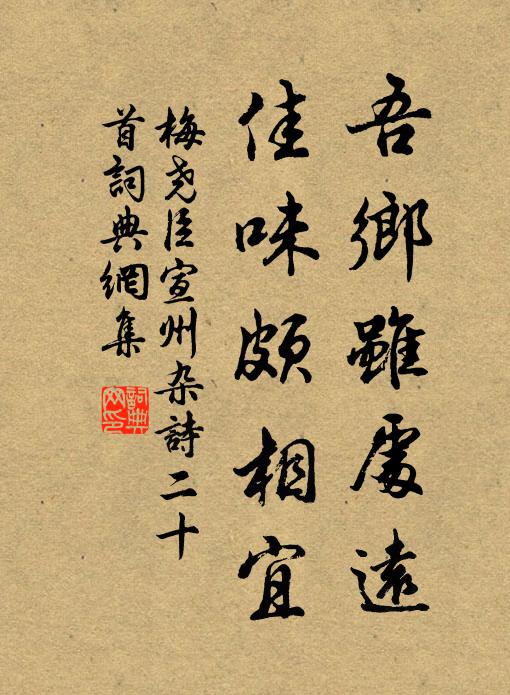 吾鄉雖處遠
佳味頗相宜
梅尧臣宣州杂詩二十
首詞典網集
詞典网印